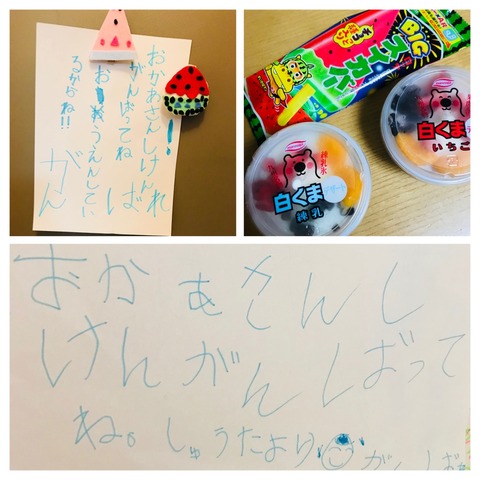 おかあさんしけん
がんばってね
うえんしてい
るからね!!
がんばれ
BIG
スイカバー
チョコ種入り
練乳氷
白くま
デザート
練乳
白くま
いちご
おかあさんし
けんがんばって
ね。しゅうたより がんば